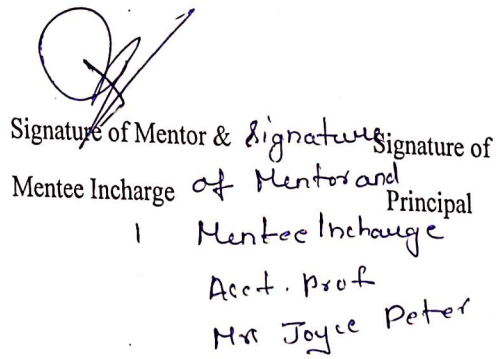 Signature of Mentor & Signature Signature of
Mentee Incharge of Mentor and Principal
Mentee Incharge
Acct. Prof
Joyce Peter